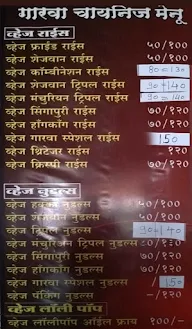 गारवा चायनिज मेनू
व्हेज राईस
व्हेज फ्राईड राईस ५०/१००
व्हेज शेजवान राईस ५०/१००
व्हेज कॉम्बीनेशन राईस 80=130
व्हेज शेजवान ट्रिपल राईस 90+140
व्हेज मंचुरियन ट्रिपल राईस 90=140
व्हेज सिंगापुरी राईस ७०/१२०
व्हेज हाँगकाँग राईस ७०/१२०
व्हेज गारवा स्पेशल राईस 150
व्हेज थ्रिटेजर राईस १२०
व्हेज क्रिस्पी राईस ७०/१२०
व्हेज नुडल्स
व्हेज हक्का नुडल्स ५०/१००
व्हेज शेजवान नुडल्स ५०/१००
व्हेज ट्रिपल नुडल्स 90-140
व्हेज मंचुरियन ट्रिपल नुडल्स
व्हेज सिंगापुरी नुडल्स ७०/१२०
व्हेज हाँगकाँग नुडल्स ७०/१२०
व्हेज गारवा स्पेशल नुडल्स 150
व्हेज पॅकिंग नुडल्स -/१२०
व्हेज लॉली पॉप
व्हेज लॉलीपॉप ऑईल फ्राय १००/-